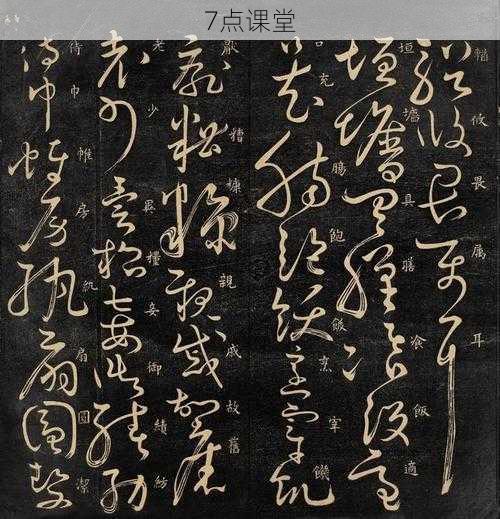 7点课堂
輶攸畏属耳
垣墻具膳飡飯適
口充腸飽飫烹宰饑
厭糟糠親戚故舊
老少異糧妾御績紡
侍巾帷房紈扇圓潔